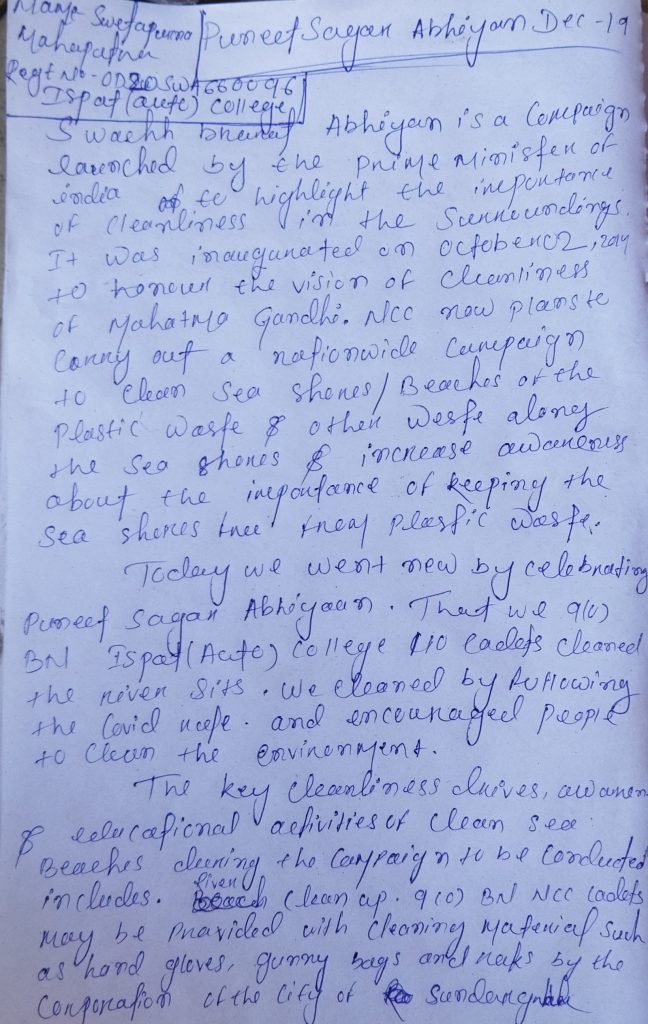 Manja Swetapurna
Mahapatra
Regt No - OD20SWA660096
Ispat (auto) college
Puneet Sagar Abhiyan Dec - 19
Swachh bharat Abhiyan is a Campaign
launched by the prime Minister of
india to highlight the importance
of Cleanliness in the Surroundings.
It was inaugurated on october 02, 2014
to honour the vision of cleanliness
of Mahatma Gandhi. NCC now plans to
Carry out a nationwide Campaign
to Clean Sea shores / Beaches of the
Plastic waste & other weste along
the Sea shores & increase awareness
about the importance of keeping the
Sea shores free from plastic waste.
Today we went new by celebrating
Puneet Sagar Abhiyaan. That we 9(O)
BN Ispat (Auto) College 110 cadets cleaned
the river Sits. We cleaned by following
the Covid rule. and encouraged people
to Clean the environment.
The key Cleanliness drives, awaren
& educational activities of clean sea
Beaches during the Campaign to be conducted
includes. river Clean up. 9(O) BN NCC Cadets
may be provided with Cleaning material Such
as hand gloves, gunny bags and raks by the
Corporation of the City of Sundargrah